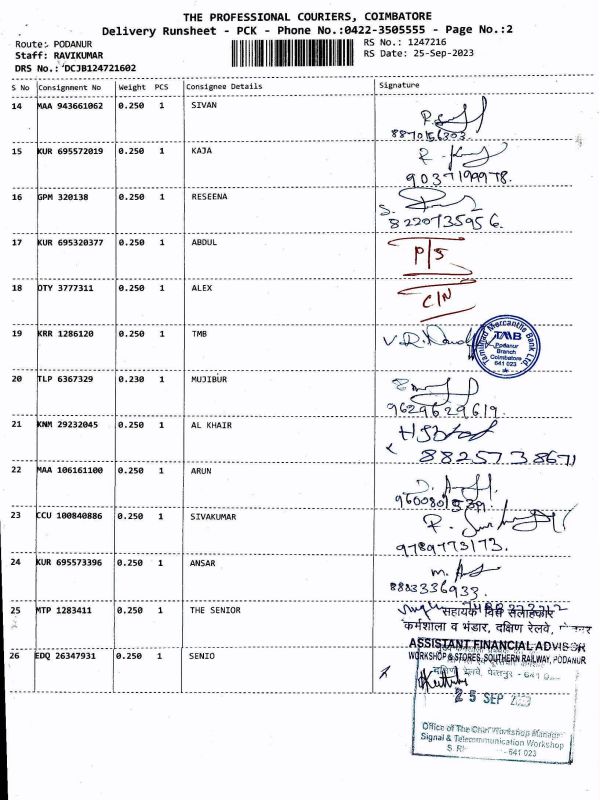 THE PROFESSIONAL COURIERS, COIMBATORE
Delivery Runsheet - PCK - Phone No.:0422-3505555 - Page No.:2
Route: PODANUR RS No.: 1247216
Staff: RAVIKUMAR RS Date: 25-Sep-2023
DRS No.: DCJB124721602
S No Consignment No Weight PCS Consignee Details Signature
14 MAA 943661062 0.250 1 SIVAN
15 KUR 695572019 0.250 1 KAJA
9037199978.
16 GPM 320138 0.250 1 RESEENA
8220735956.
17 KUR 695320377 0.250 1 ABDUL P/S
18 OTY 3777311 0.250 1 ALEX C/N
19 KRR 1286120 0.250 1 TMB
Tamilnad Mercantile Bank Ltd.
TMB
Podanur
Branch
Coimbatore
641 023
20 TLP 6367329 0.230 1 MUJIBUR
9629629619.
21 KNM 29232045 0.250 1 AL KHAIR
8825738671
22 MAA 106161100 0.250 1 ARUN
23 CCU 100840886 0.250 1 SIVAKUMAR
9789773173.
24 KUR 695573396 0.250 1 ANSAR
8803336933
25 MTP 1283411 0.250 1 THE SENIOR
सहायक वित्त सलाहकार
कर्मशाला व भंडार, दक्षिण रेलवे,
ASSISTANT FINANCIAL ADVISOR
26 EDQ 26347931 0.250 1 SENIO
WORKSHOP & STORES, SOUTHERN RAILWAY, PODANUR
25 SEP 2023
Office of The Chief Workshop Manager
Signal & Telecommunication Workshop
641 023